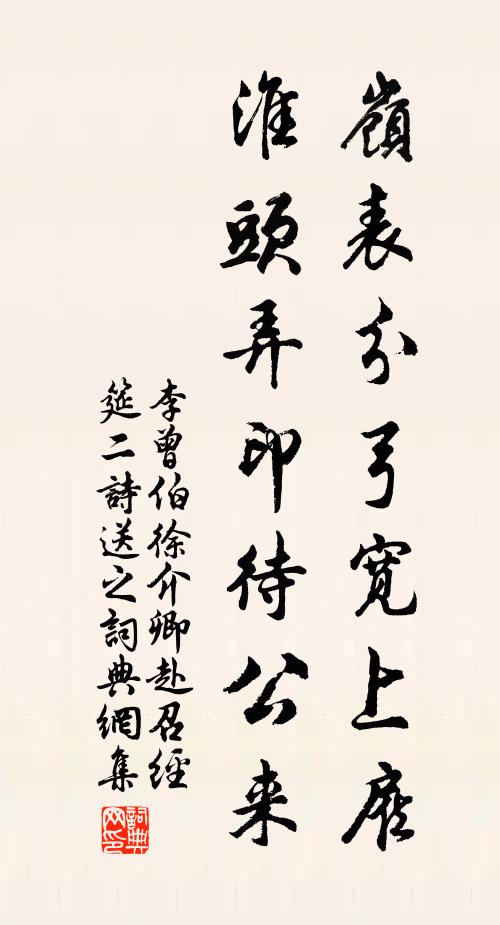 嶺表分弓寬上廐
淮頭弄印待公来
李曾伯徐介卿赴召經
筵二詩送之詞典網集
詞典网印